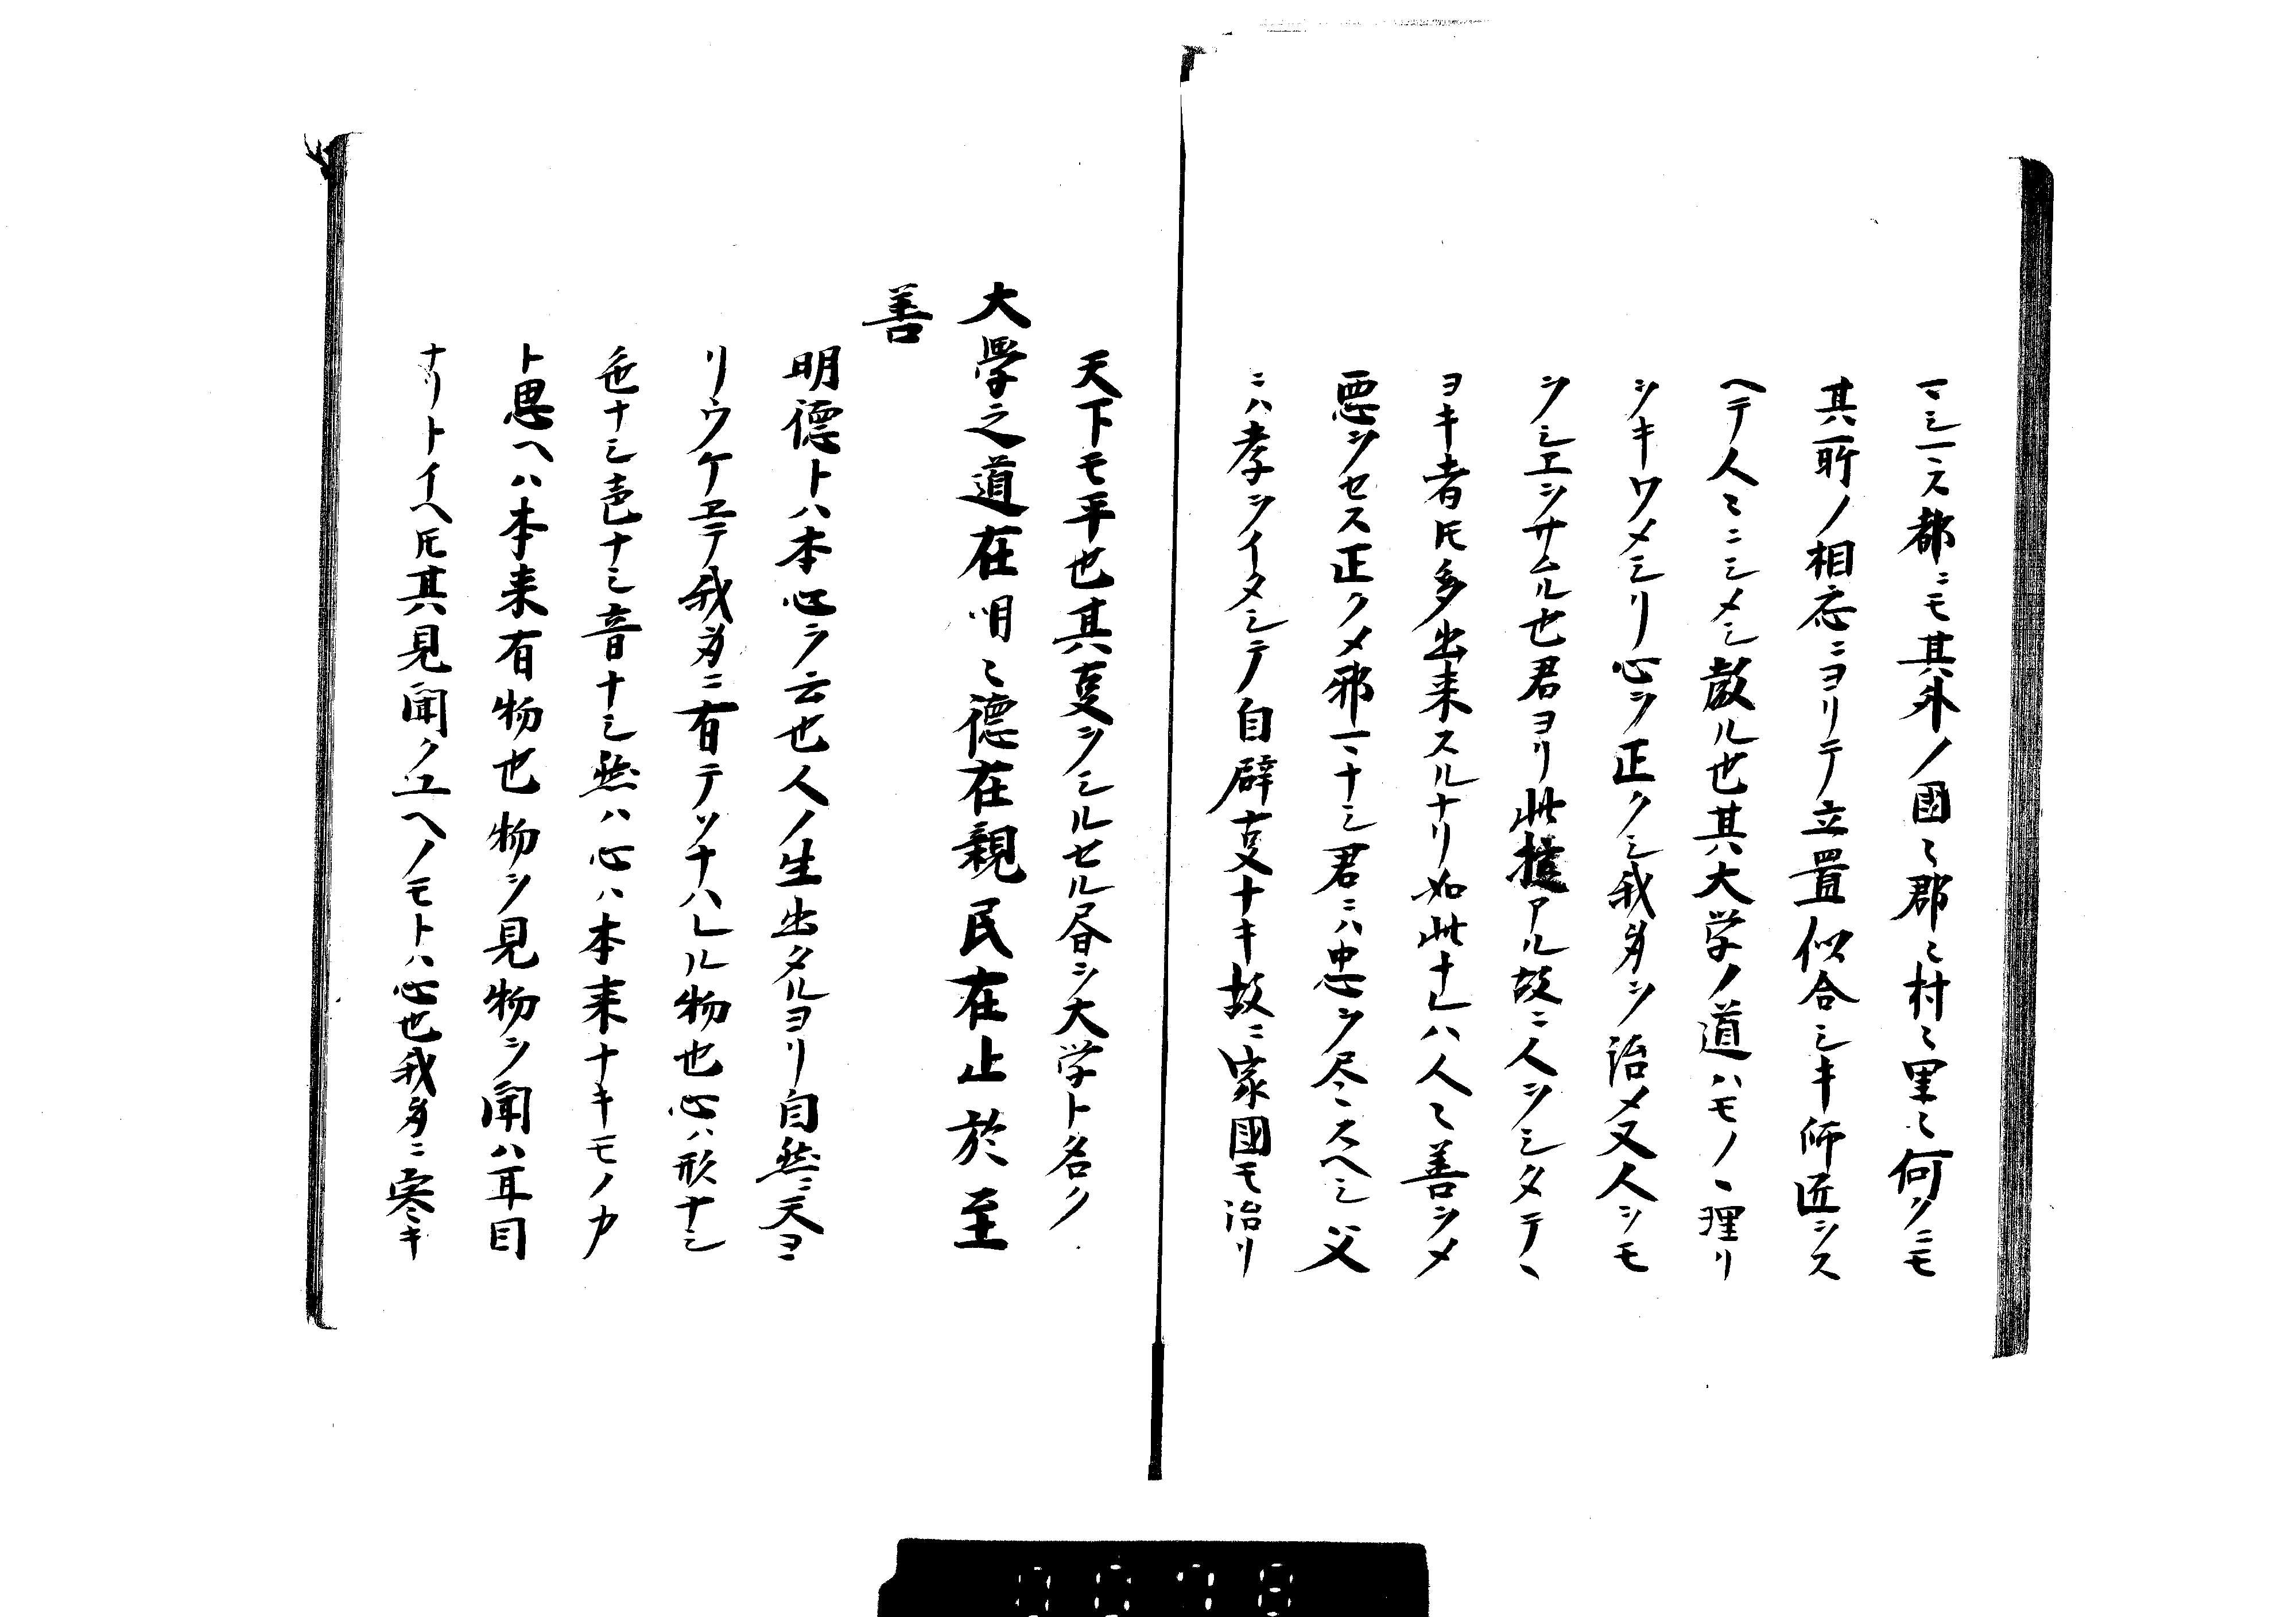 マシース都ニモ其外ノ國〻郡〻村〻里〻何クニモ
其所ノ相応ニヨリテ立置似合シキ師匠ヲス
ヘテ人〻ニシメシ教ル也其大学ノ道ハモノヽ理リ
ヲキワメシリ心ヲ正クシ我身ヲ治メ又人ヲモ
ヲシエヲサムル也君ヨリ此掟アル故ニ人ヲシタテヽ
ヨキ者𪜈多出来スルナリ如此ナレハ人〻善ヲメ
悪ヲセス正クメ邪マナシ君ニハ忠ヲ尽スヘシ父
ニハ孝ヲイタシテ自辟叓ナキ故ニ家國モ治リ
天下モ平也其叓ヲシルセル昼ヲ大学ト名ク
大學之道在明〻德在親民在止於至
善
明德トハ本心ヲ云也人ノ生出タルヨリ自然ニ天ヨ
リウケヱテ我身ニ有テソナハレル物也心ハ形ナシ
色ナシ声ナシ音ナシ然ハ心ハ本来ナキモノカ
ト思ヘハ本来有物也物ヲ見物ヲ聞ハ耳目
ナリトイヘ𪜈其見聞クユヘノモトハ心也我身ニ寒キ